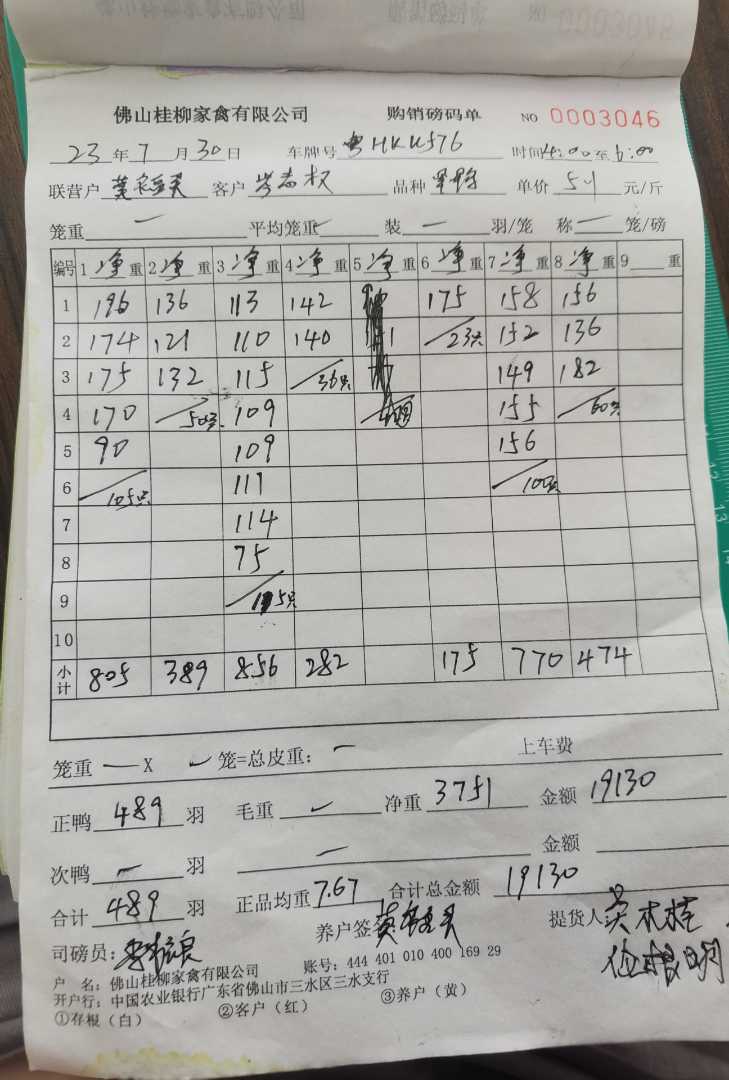 佛山桂柳家禽有限公司 购销磅码单 NO 0003046
23 年 7 月 30 日 车牌号 粤HKU576 时间 4:00 至 6:00
联营户 客户 品种 单价 5.1 元/斤
笼重 一 平均笼重 装 一 羽/笼 称 一 笼/磅
编号 1 净 重 2 净 重 3 净 重 4 净 重 5 净 重 6 净 重 7 净 重 8 净 重 9 重
1 196 136 113 142 175 158 156
2 174 121 110 140 23只 152 136
3 175 132 115 36只 149 182
4 170 50只 109 155 60只
5 90 109 156
6 105只 111 100只
7 114
8 75
9 115只
10
小计 805 389 856 282 175 770 474
笼重 一 X 笼=总皮重: 一 上车费
正鸭 489 羽 毛重 净重 3751 金额 19130
次鸭 一 羽 一 金额
合计 489 羽 正品均重 7.67 合计总金额 19130
养户签 提货人
司磅员:
户 名: 佛山桂柳家禽有限公司 账号: 444 401 010 400 169 29
开户行: 中国农业银行广东省佛山市三水区三水支行
①存根(白) ②客户(红) ③养户(黄)